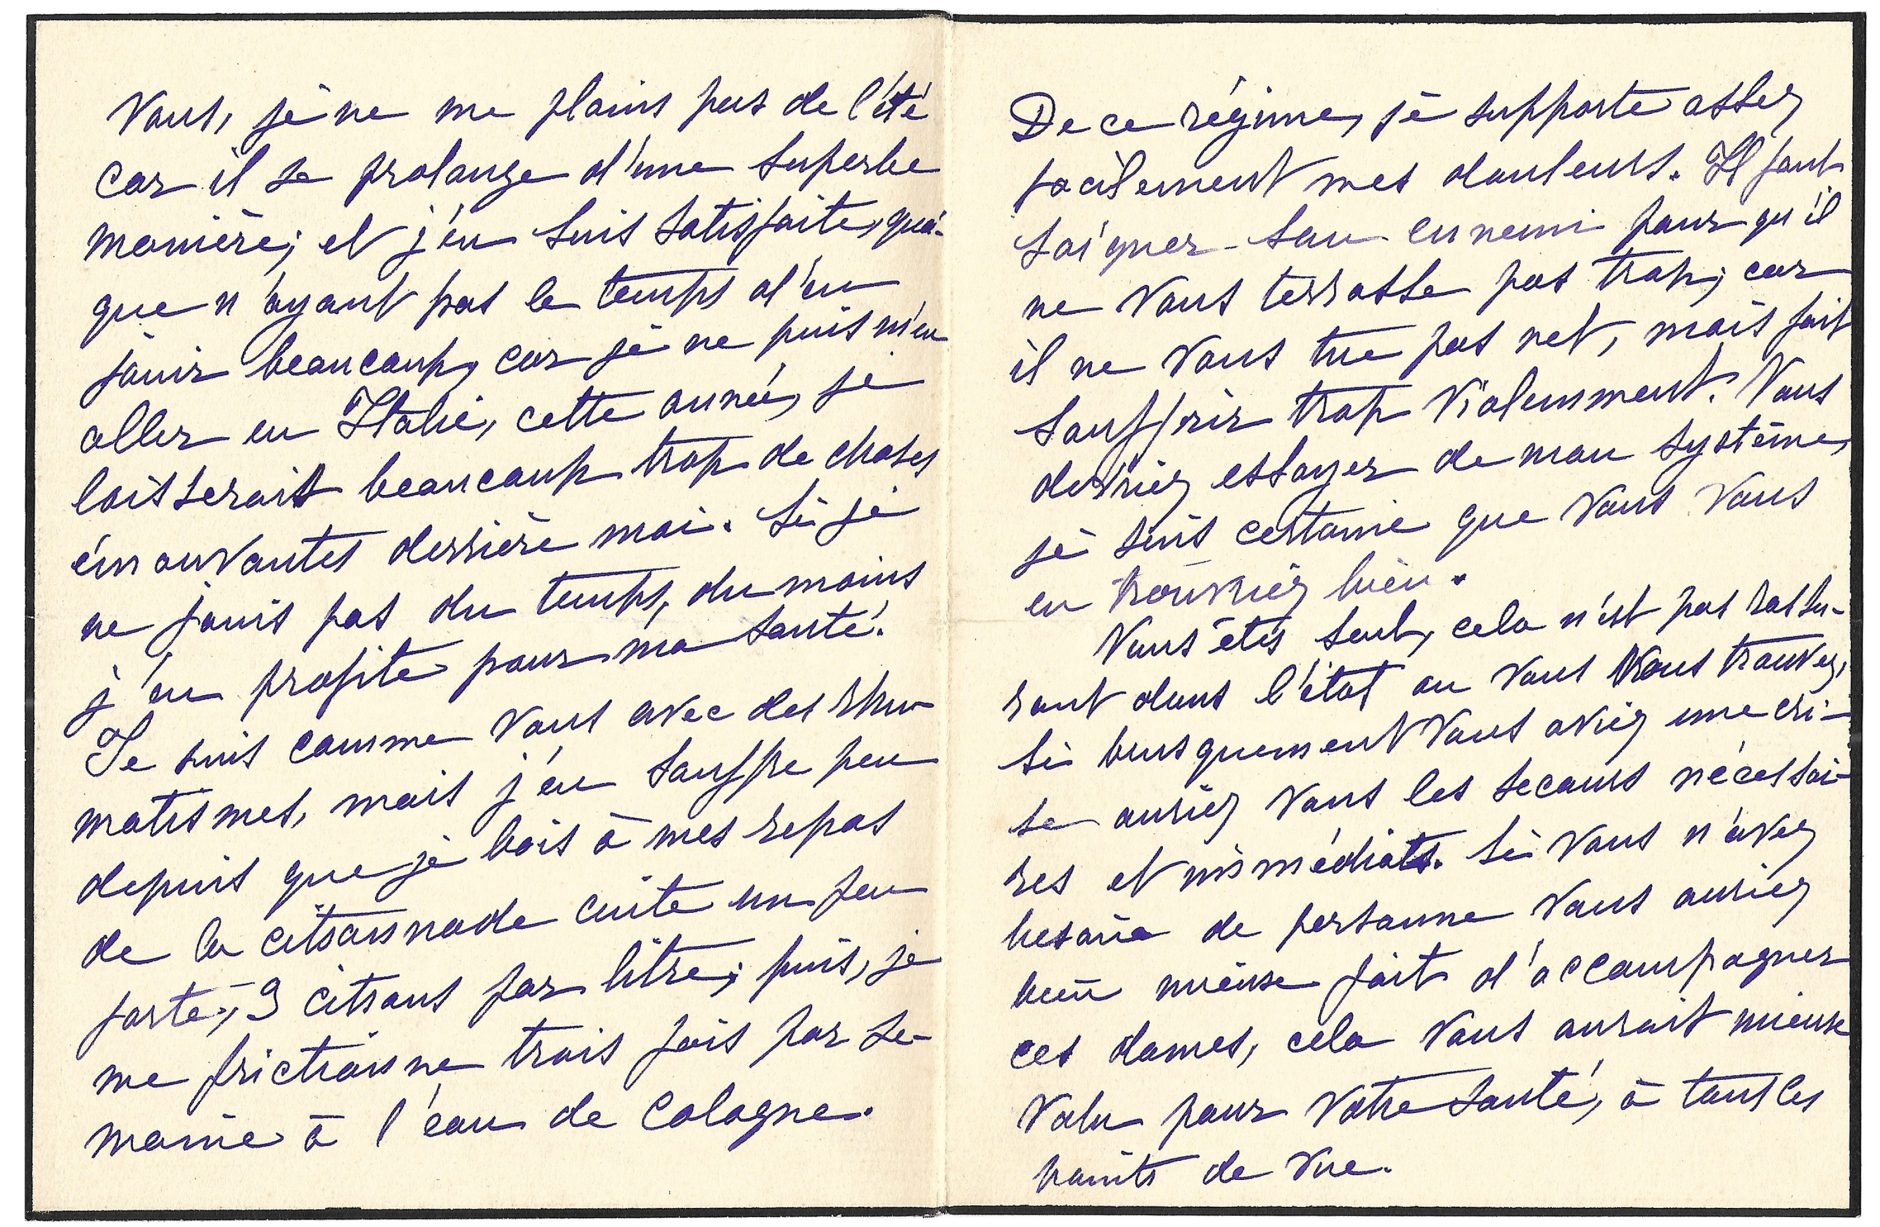 Vous, je ne me plains pas de l'été
car il se prolonge d'une superbe
manière; et j'en suis satisfaite, quoi-
que n'ayant pas le temps d'en
jouir beaucoup, car je ne puis m'en
aller en Italie, cette année, je
laisserais beaucoup trop de choses
émouvantes derrière moi. Si je
ne jouis pas du temps, du moins
j'en profite pour ma santé.
Je suis comme vous avec des rhu-
matismes, mais j'en souffre peu
depuis que je bois à mes repas
de la citronnade cuite un peu
forte, 3 citrons par litre; puis, je
me frictionne trois fois par se-
maine à l'eau de Cologne.
De ce régime, je supporte assez
facilement mes douleurs. Il faut
soigner son ennemi pour qu'il
ne vous terrasse pas trop, car
il ne vous tue pas net, mais fait
souffrir trop violemment. Vous
devriez essayer de mon système,
je suis certaine que vous vous
en trouvriez bien.
Vous êtes seul, cela n'est pas rassu-
rant dans l'état ou vous vous trouvez,
si brusquement vous aviez une cri-
se auriez vous les secours nécessai-
res et immédiats. Si vous n'avez
besoin de personne vous auriez
bien mieux fait d'accompagner
ces dames, cela vous aurait mieux
valu pour votre santé, à tous les
points de vue.